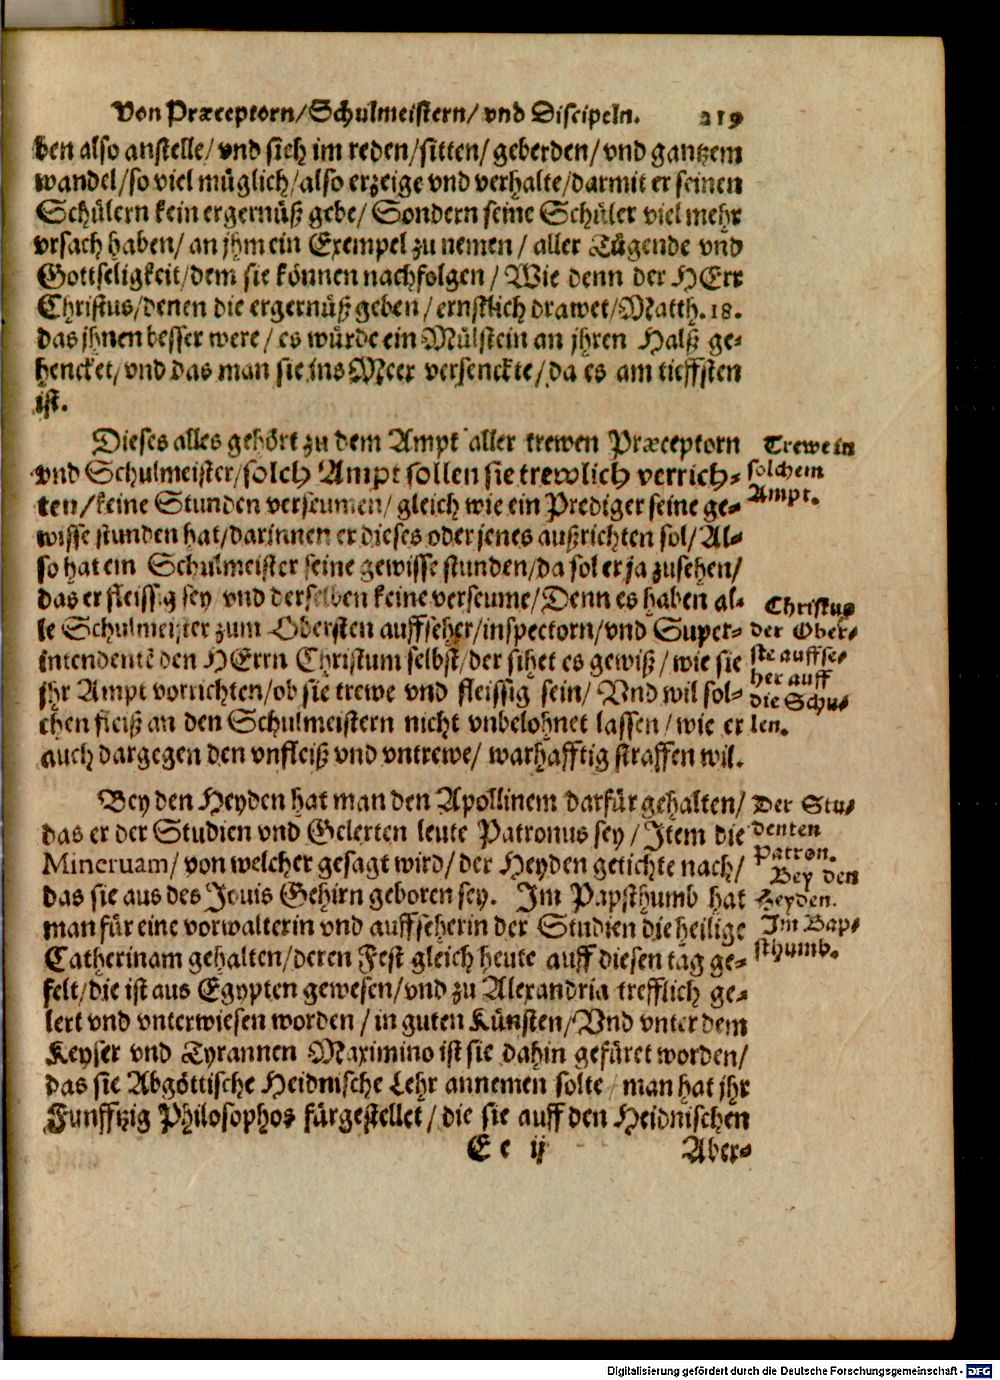 Von Præceptorn/Schulmeistern/vnd Discipeln. 219
ben also anstelle/vnd sich im reden/sitten/geberden/vnd gantzem
wandel/so viel müglich/also erzeige vnd verhalte/darmit er seinen
Schülern kein ergernüß gebe/Sondern seine Schüler viel mehr
vrsach haben/an jhm ein Exempel zu nemen/aller Tugende vnd
Gottseligkeit/dem sie können nachfolgen/Wie denn der HErr
Christus/denen die ergernüß geben/ernstlich drawet/Matth.18.
das jhnen besser were/es würde ein Mülstein an jhren Halß ge-
hencket/vnd das man sie ins Meer versenckte/da es am tieffsten
ist.
Dieses alles gehört zu dem Ampt aller trewen Præceptorn
vnd Schulmeister/solch Ampt sollen sie trewlich verrich-
ten/keine Stunden verseumen/gleich wie ein Prediger seine ge-
wisse stunden hat/darinnen er dieses oder jenes außrichten sol/Al-
so hat ein Schulmeister seine gewisse stunden/da sol er ja zusehen/
das er fleissig sey vnd derselben keine verseume/Denn es haben al-
le Schulmeister zum Obersten auffseher/inspectorn/vnd Super-
intendentē den HErrn Christum selbst/der sihet es gewiß/wie sie
jhr Ampt vorrichten/ob sie trewe vnd fleissig sein/Vnd wil sol-
chen fleiß an den Schulmeistern nicht vnbelohnet lassen/wie er
auch dargegen den vnfleiß vnd vntrewe/warhafftig straffen wil.
Trewe in
solchem
Ampt.
Christus
der Ober-
ste auffse-
her auff
die Schu-
len.
Bey den Heyden hat man den Apollinem darfür gehalten/
das er der Studien vnd Gelerten leute Patronus sey/Item die
Mineruam/von welcher gesagt wird/der Heyden getichte nach/
das sie aus des Jouis Gehirn geboren sey. Im Papsthumb hat
man für eine vorwalterin vnd auffseherin der Studien die heilige
Catherinam gehalten/deren Fest gleich heute auff diesen tag ge-
felt/die ist aus Egypten gewesen/vnd zu Alexandria trefflich ge-
lert vnd vnterwiesen worden/in guten Künsten/Vnd vnter dem
Keyser vnd Tyrannen Maximino ist sie dahin gefüret worden/
das sie Abgöttische Heidnische Lehr annemen solte/man hat jhr
Funfftzig Philosophos fürgestellet/die sie auff den Heidnischen
Der Stu-
denten
Patron.
Bey den
Heyden.
Im Bap-
sthumb.
E e ij Aber-
Digitalisierung gefördert durch die Deutsche Forschungsgemeinschaft - DFG